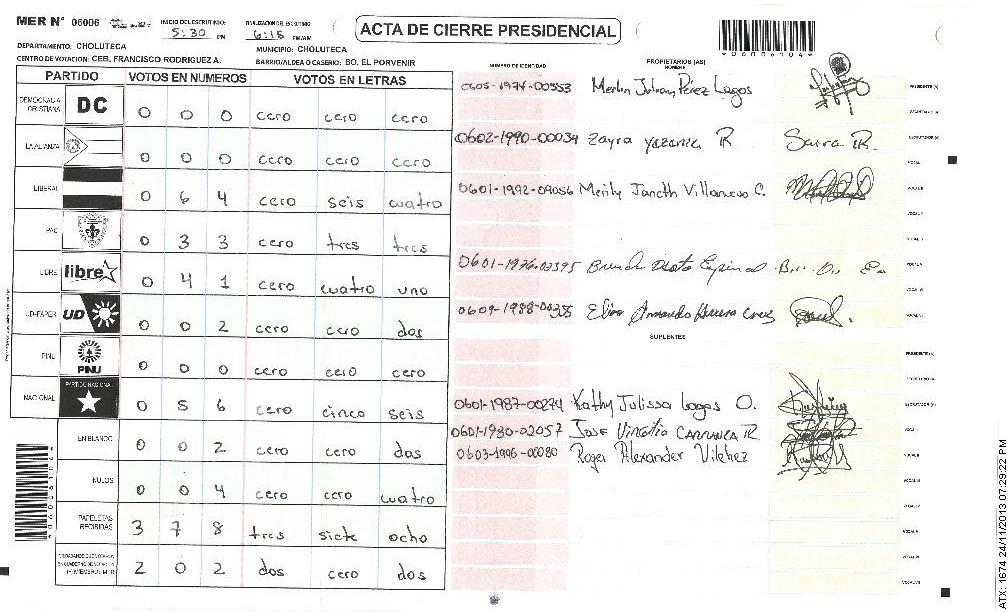 MER N° 06006
INICIO DEL ESCRUTINIO: 5:30 PM
FINALIZACION DEL ESCRUTINIO: 6:15 PM/AM
ACTA DE CIERRE PRESIDENCIAL
DEPARTAMENTO: CHOLUTECA
MUNICIPIO: CHOLUTECA
CENTRO DE VOTACION: CEB. FRANCISCO RODRIGUEZ A.
BARRIO/ALDEA O CASERIO: BO. EL PORVENIR
PARTIDO VOTOS EN NUMEROS VOTOS EN LETRAS
DEMOCRACIA CRISTIANA DC 0 0 0 cero cero cero
LA ALIANZA 0 0 0 cero cero cero
LIBERAL 0 6 4 cero seis cuatro
PAC 0 3 3 cero tres tres
LIBRE libre 0 4 1 cero cuatro uno
UD-FAPER UD 0 0 2 cero cero dos
PINU PINU 0 0 0 cero cero cero
NACIONAL PARTIDO NACIONAL 0 5 6 cero cinco seis
EN BLANCO 0 0 2 cero cero dos
NULOS 0 0 4 cero cero cuatro
PAPELETAS RECIBIDAS 3 7 8 tres siete ocho
CIUDADANOS QUE VOTARON EN CUADERNO DE VOTACION (+) MIEMBROS MER 2 0 2 dos cero dos
NUMERO DE IDENTIDAD
PROPIETARIOS (AS)
NOMBRE
0605-1974-00553 Merlin Johany Pérez Lagos
PRESIDENTE (A)
SECRETARIO (A)
0602-1990-00034 Zayra Yazenia R
ESCRUTADOR (A)
VOCAL I
0601-1992-09056 Merily Janeth Villanueva C.
VOCAL II
VOCAL III
0601-1976-02395
VOCAL V
VOCAL VI
0609-1988-00355 Armando Herrera Cruz
SUPLENTES
PRESIDENTE (A)
SECRETARIO (A)
0601-1987-00274 Kathy Julissa Lagos O.
ESCRUTADOR (A)
0601-1980-02057 Jose Virgilio Carranza R
VOCAL I
0603-1996-00080 Roger Alexander Vilchez
VOCAL II
VOCAL III
VOCAL IV
VOCAL V
VOCAL VI
VOCAL VII
*06006104*
ATX: 1674 24/11/2013 07:29:22 PM